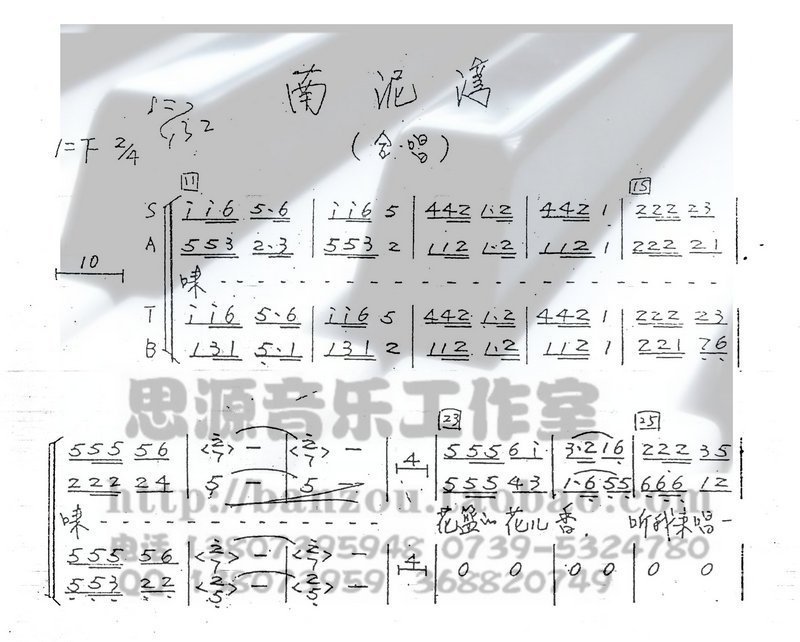 南泥湾
(合唱)
1=下 2/4
11 15
S i i 6 5·6 | i i 6 5 | 4 4 2 1·2 | 4 4 2 1 | 2 2 2 2 3 |
A 5 5 3 2·3 | 5 5 3 2 | 1 1 2 1·2 | 1 1 2 1 | 2 2 2 2 1 |
10
嗦 - - - - - -
T i i 6 5·6 | i i 6 5 | 4 4 2 1·2 | 4 4 2 1 | 2 2 2 2 3 |
B 1 3 1 5·1 | 1 3 1 2 | 1 1 2 1·2 | 1 1 2 1 | 2 2 1 7 6 |
思源音乐工作室
23 25
5 5 5 5 6 | <2/7> — | <2/7> — | 4 | 5 5 5 6 i | 3·2 1 6 | 2 2 2 3 5 |
2 2 2 2 4 | 5 — | 5 — | 5 5 5 4 3 | 1·6 5 5 | 6 6 6 1 2 |
http://banzou.taobao.com
嗦 - - - - - - 花篮的花儿香, 听我来唱一
电话 13807395948 0739-5324780
5 5 5 5 6 | <2/7> — | <2/7> — | 4 | 0 0 | 0 0 | 0 0 |
5 5 3 2 2 | <2/5> — | <2/5> — |
QQ 368820749